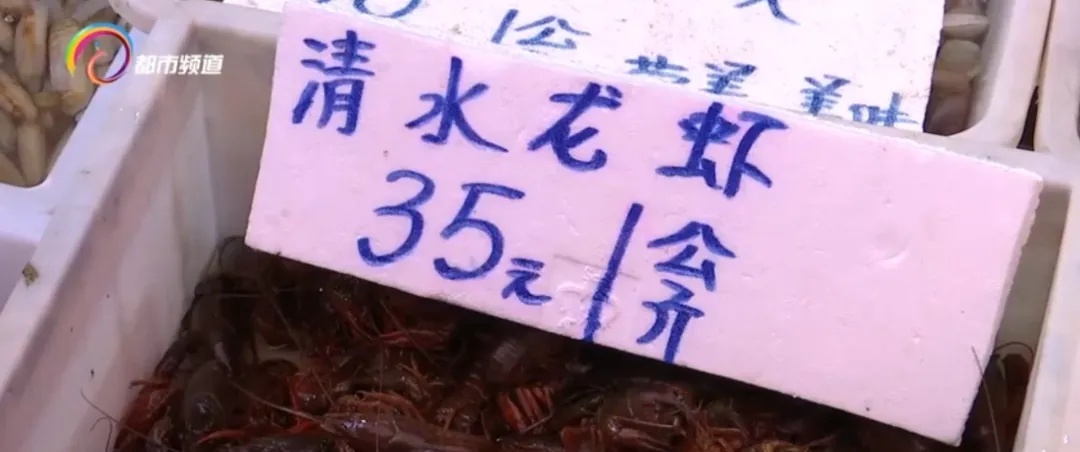 都市频道
清水龙虾
35元/公斤